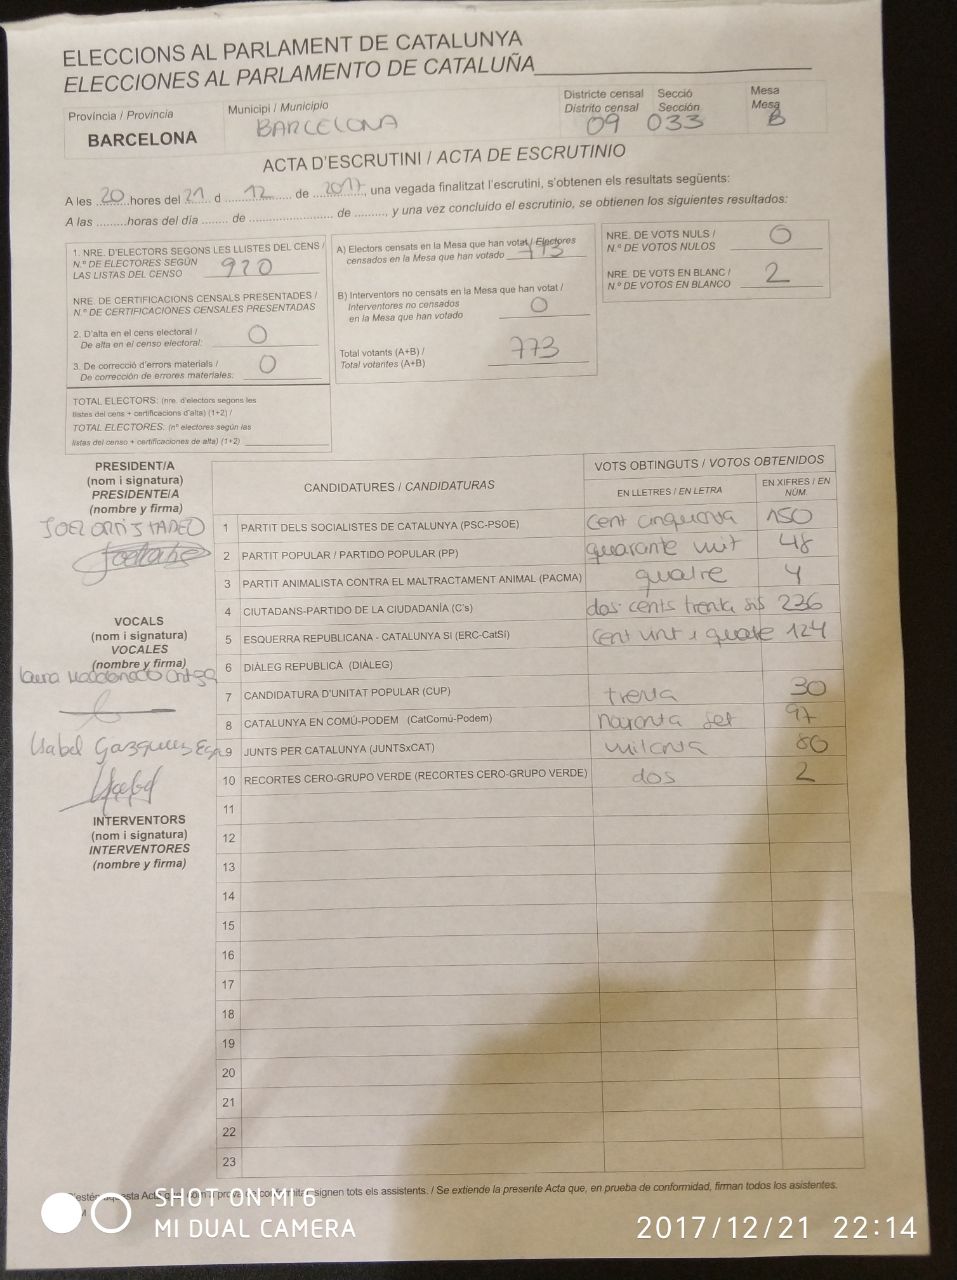 ELECCIONS AL PARLAMENT DE CATALUNYA
ELECCIONES AL PARLAMENTO DE CATALUÑA
Província / Provincia
BARCELONA
Municipi / Municipio
BARCELONA
Districte censal
Distrito censal
09
Secció
Sección
033
Mesa
Mesa
B
ACTA D'ESCRUTINI / ACTA DE ESCRUTINIO
A les 20 hores del 21 d 12 de 2017, una vegada finalitzat l'escrutini, s'obtenen els resultats següents:
A las ........horas del día ........ de ......................... de .........., y una vez concluido el escrutinio, se obtienen los siguientes resultados:
1. NRE. D'ELECTORS SEGONS LES LLISTES DEL CENS /
N.º DE ELECTORES SEGÚN
LAS LISTAS DEL CENSO 920
NRE. DE CERTIFICACIONS CENSALS PRESENTADES /
N.º DE CERTIFICACIONES CENSALES PRESENTADAS
2. D'alta en el cens electoral /
De alta en el censo electoral: 0
3. De correcció d'errors materials /
De corrección de errores materiales: 0
TOTAL ELECTORS: (nre. d'electors segons les
llistes del cens + certificacions d'alta) (1+2) /
TOTAL ELECTORES: (nº electores según las
listas del censo + certificaciones de alta) (1+2)
A) Electors censats en la Mesa que han votat / Electores
censados en la Mesa que han votado 773
B) Interventors no censats en la Mesa que han votat /
Interventores no censados
en la Mesa que han votado 0
Total votants (A+B) /
Total votantes (A+B) 773
NRE. DE VOTS NULS /
N.º DE VOTOS NULOS 0
NRE. DE VOTS EN BLANC /
N.º DE VOTOS EN BLANCO 2
PRESIDENT/A
(nom i signatura)
PRESIDENTE/A
(nombre y firma)
VOCALS
(nom i signatura)
VOCALES
(nombre y firma)
INTERVENTORS
(nom i signatura)
INTERVENTORES
(nombre y firma)
CANDIDATURES / CANDIDATURAS
VOTS OBTINGUTS / VOTOS OBTENIDOS
EN LLETRES / EN LETRA
EN XIFRES / EN
NÚM.
1 PARTIT DELS SOCIALISTES DE CATALUNYA (PSC-PSOE) cent cinquanta 150
2 PARTIT POPULAR / PARTIDO POPULAR (PP) quaranta vuit 48
3 PARTIT ANIMALISTA CONTRA EL MALTRACTAMENT ANIMAL (PACMA) quatre 4
4 CIUTADANS-PARTIDO DE LA CIUDADANÍA (C's) dos-cents trenta sis 236
5 ESQUERRA REPUBLICANA - CATALUNYA SI (ERC-CatSí) cent vint i quatre 124
6 DIÀLEG REPUBLICÀ (DIÀLEG)
7 CANDIDATURA D'UNITAT POPULAR (CUP) trenta 30
8 CATALUNYA EN COMÚ-PODEM (CatComú-Podem) noranta set 97
9 JUNTS PER CATALUNYA (JUNTSxCAT) 80
10 RECORTES CERO-GRUPO VERDE (RECORTES CERO-GRUPO VERDE) dos 2
11
12
13
14
15
16
17
18
19
20
21
22
23
signen tots els assistents. / Se extiende la presente Acta que, en prueba de conformidad, firman todos los asistentes.
SHOT ON MI 6
MI DUAL CAMERA
2017/12/21 22:14